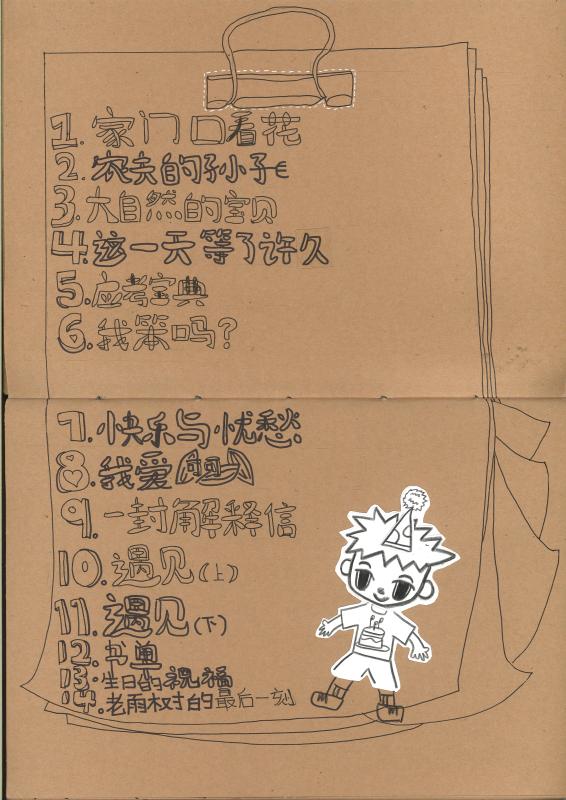 1. 家门口看花
2. 农夫的孙小子
3. 大自然的宝贝
4. 这一天等了许久
5. 应考宝典
6. 我笨吗？
7. 快乐与忧愁
8. 我爱
9. 一封解释信
10. 遇见(上)
11. 遇见(下)
12. 书单
13. 生日的祝福
14. 老雨树的最后一刻